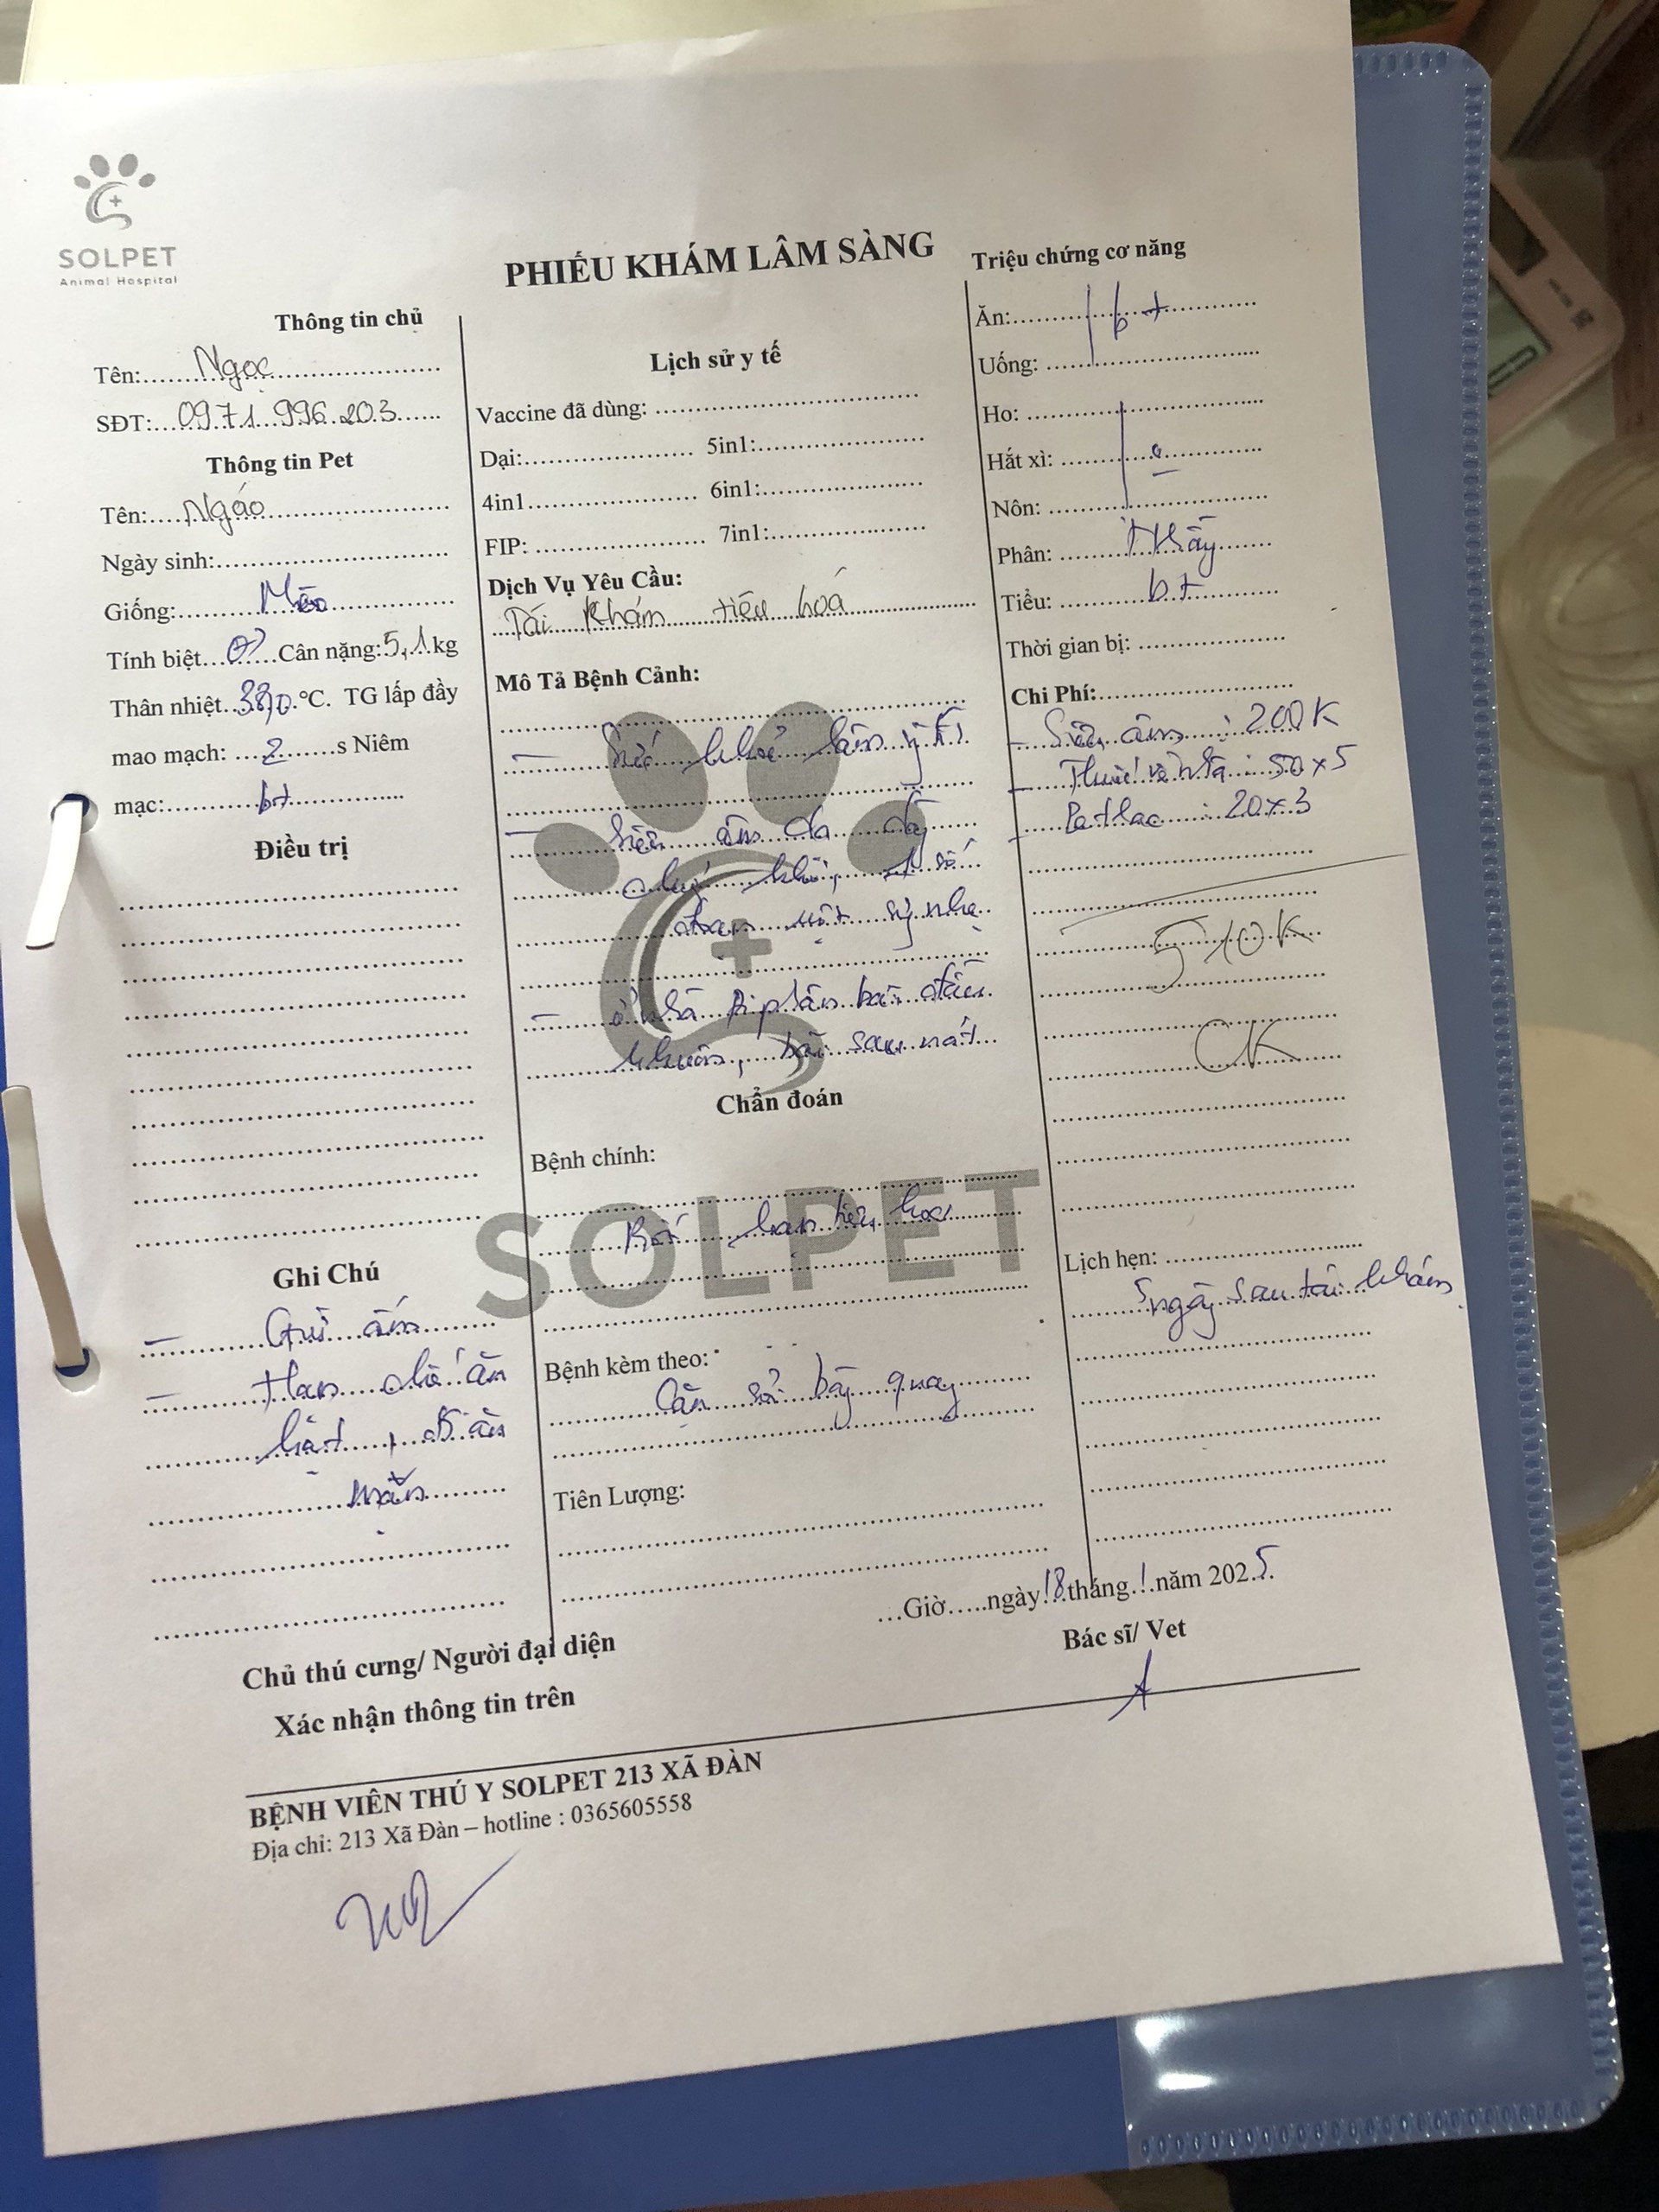 SOLPET
Animal Hospital
PHIẾU KHÁM LÂM SÀNG
Thông tin chủ
Tên:......Ngọc
SĐT:...0971.996.203......
Thông tin Pet
Tên:....Ngáo
Ngày sinh:
Giống:.......Mèo
Tính biệt...♂...Cân nặng:5,1.kg
Thân nhiệt..38,0.°C. TG lấp đầy
mao mạch: ...2......s Niêm
mạc:..........bt
Điều trị
Ghi Chú
- Giữ ấm
- Hạn chế ăn
hạt, đồ ăn
mặn
Lịch sử y tế
Vaccine đã dùng:
Dại: 5in1:
4in1 6in1:
FIP: 7in1:
Dịch Vụ Yêu Cầu:
Tái khám tiêu hoá
Mô Tả Bệnh Cảnh:
- Sức khoẻ lâm
- Siêu âm dạ dày
khí, 1 số
đoạn ruột nhẹ
- ở nhà đi phân bãi đầu
khuôn, bãi sau nát
Chẩn đoán
Bệnh chính:
Rối loạn tiêu hoá
Bệnh kèm theo:
Cặn sỏi bàng quang
Tiên Lượng:
Triệu chứng cơ năng
Ăn: bt
Uống:
Ho:
Hắt xì: 0
Nôn:
Phân: Nhầy
Tiểu: bt
Thời gian bị:
Chi Phí:
- Siêu âm : 200K
- Thuốc về nhà : 50x5
- Petlac : 20x3
510K
CK
Lịch hẹn:
5 ngày sau tái khám
...Giờ.....ngày 18 tháng.1.năm 2025.
Bác sĩ/ Vet
Chủ thú cưng/ Người đại diện
Xác nhận thông tin trên
BỆNH VIÊN THÚ Y SOLPET 213 XÃ ĐÀN
Địa chỉ: 213 Xã Đàn – hotline : 0365605558
SOLPET